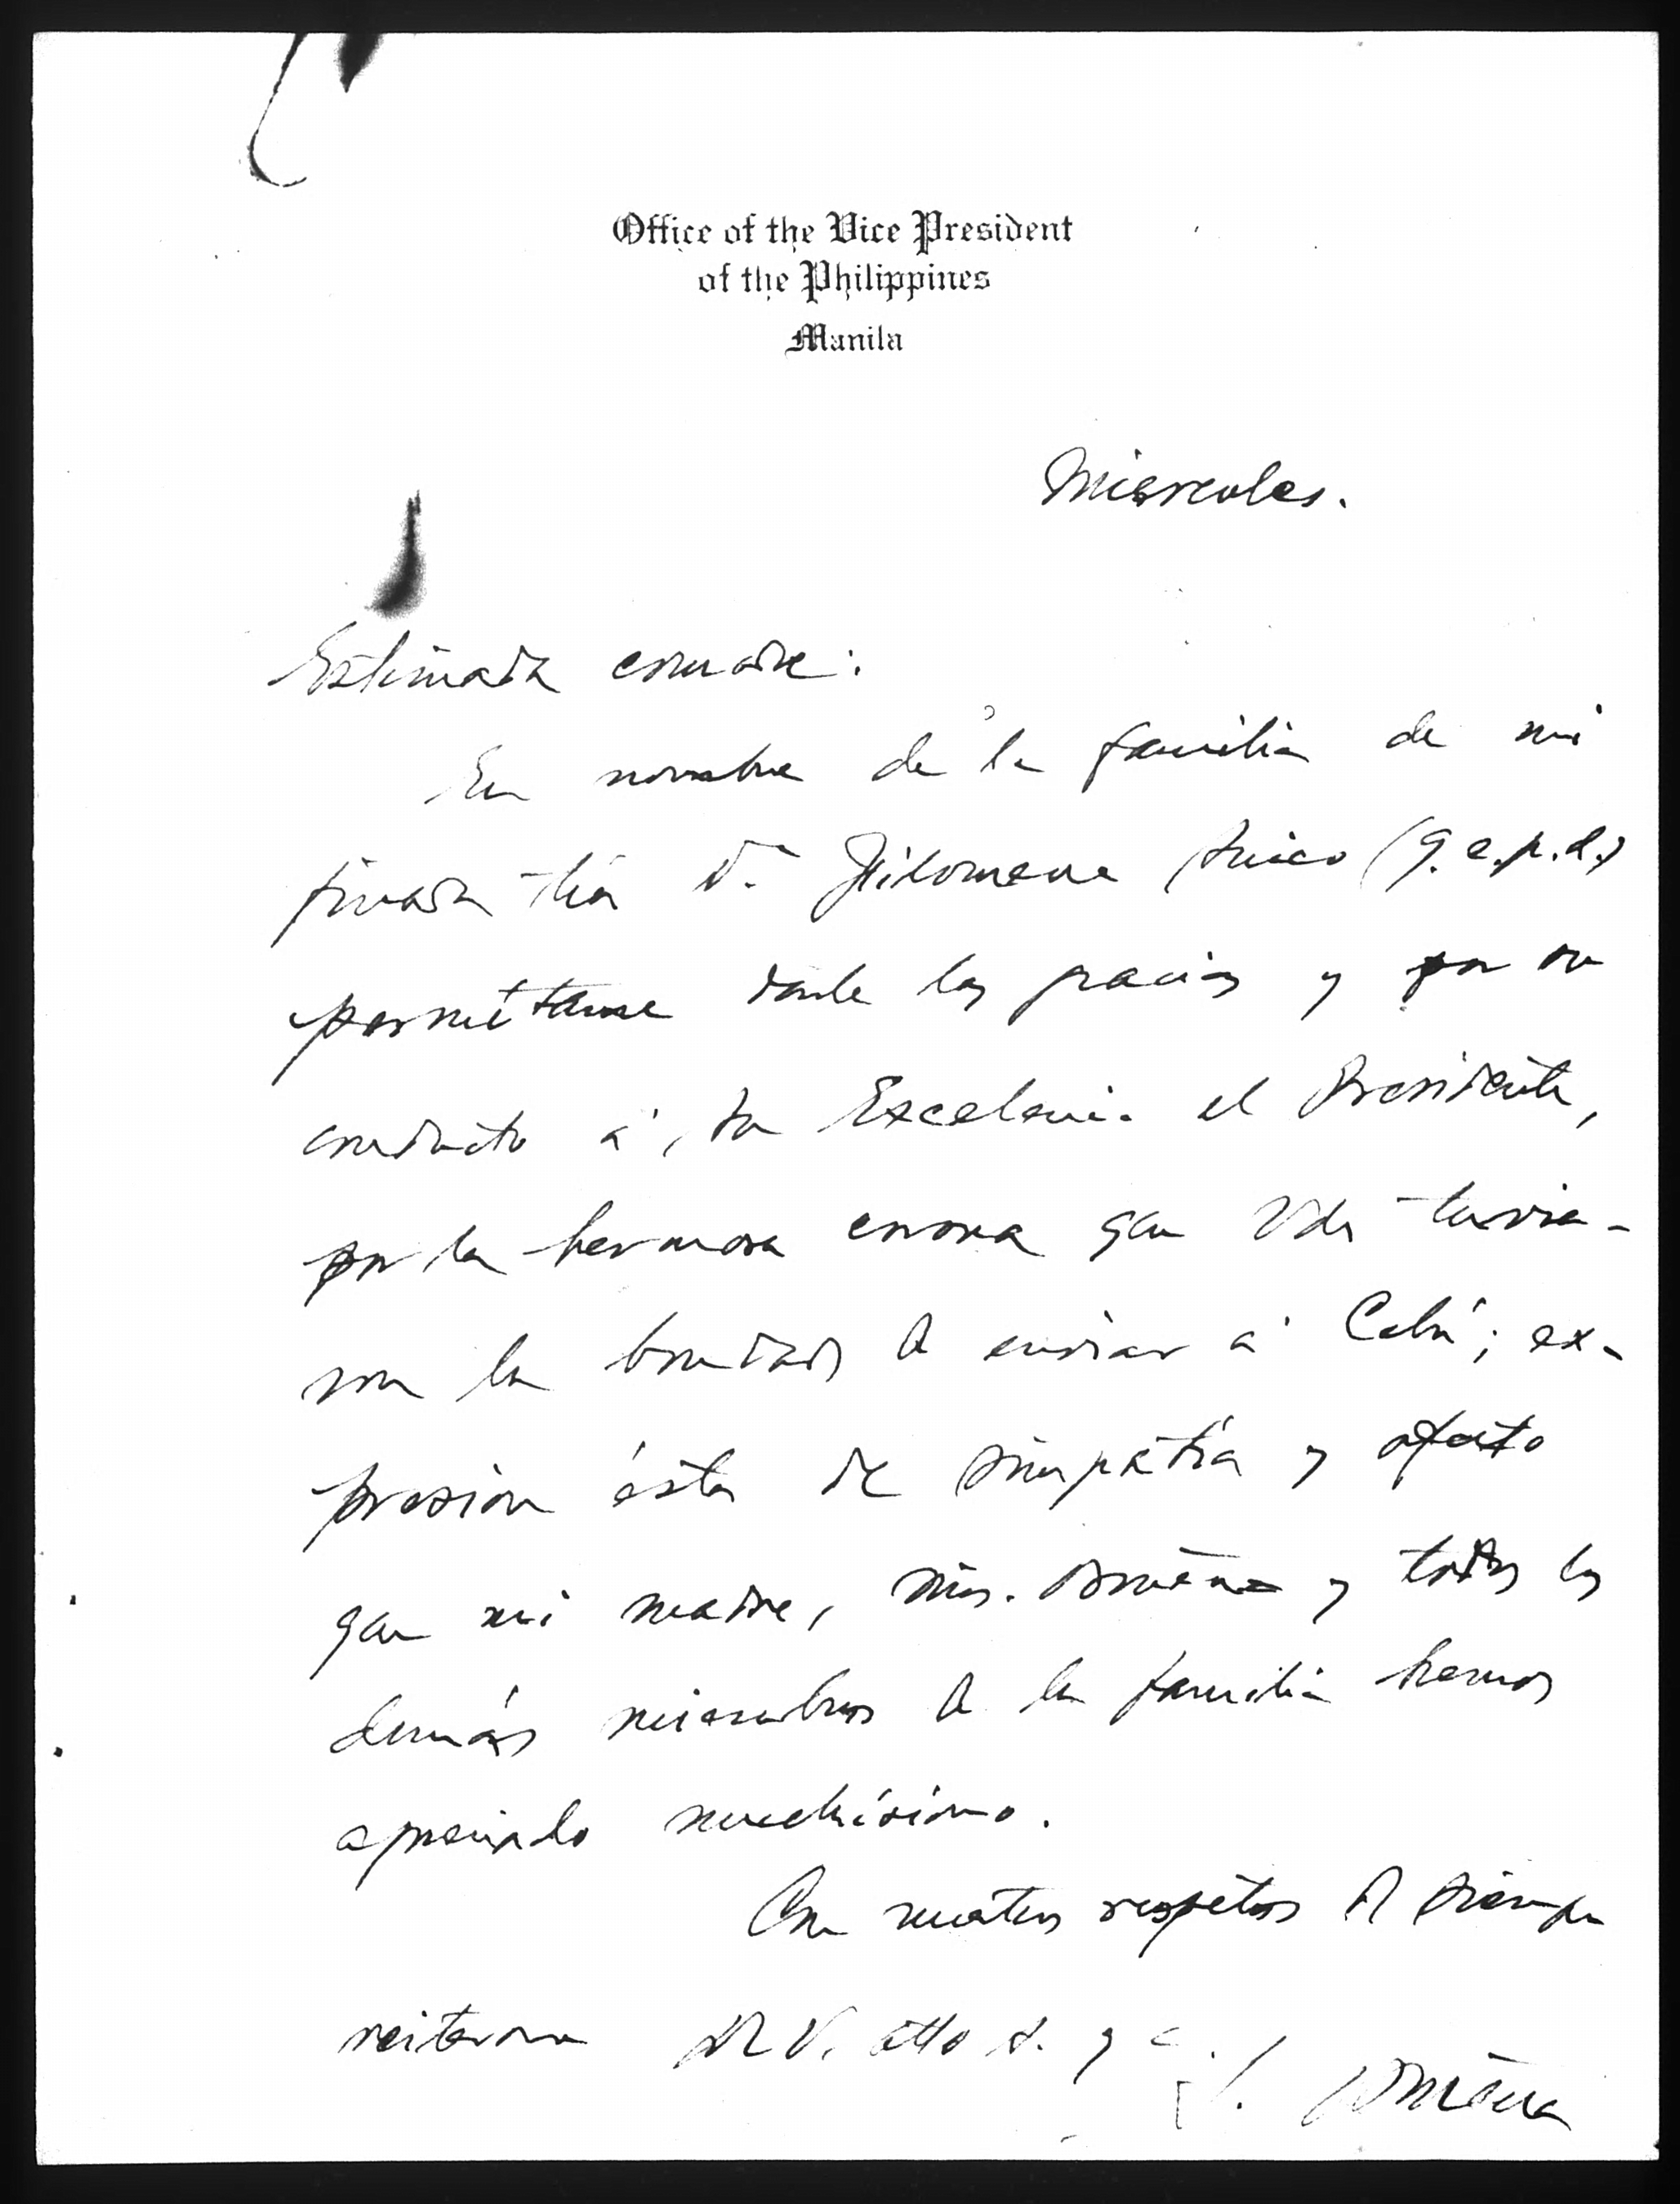 Office of the Vice President
of the Philippines
Manila
Miércoles.
Estimada comadre:
En nombre de la familia de mi
finada tía Da. Filomena Suico (q.e.p.d.)
permítame darle las gracias y por su
conducto á Su Excelencia el Presidente,
por la hermosa corona que Vds tuvie-
ron la bondad de enviar á Cebú; ex-
presión ésta de simpatía y afecto
que mi madre, Mrs. Osmeña y todos los
demás miembros de la familia hemos
apreciado muchísimo.
Con muchos respetos de siempre
reiterome de V. atto s. y c
S. Osmeña